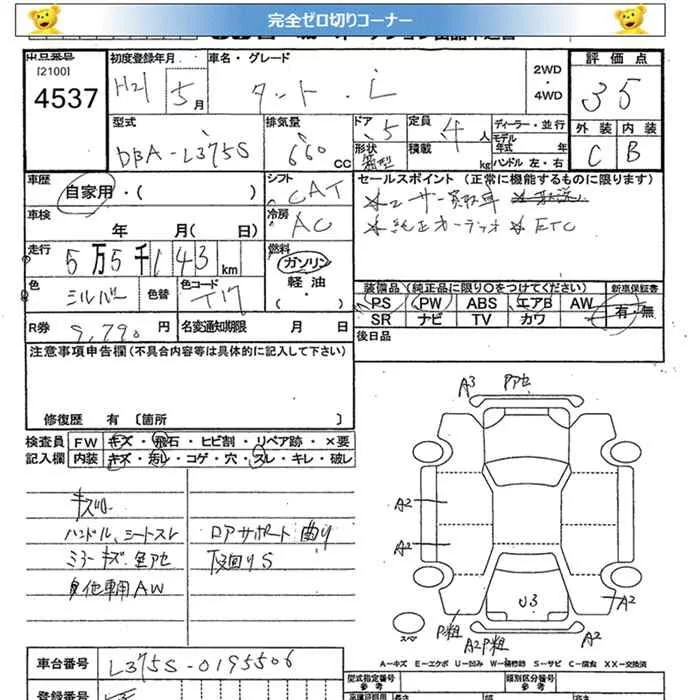 完全ゼロ切りコーナー
出品番号 初度登録年月 車名・グレード 2WD・4WD 評価点
[2100]
4537 H21 5月 タント・L 35
型式 排気量 ドア 定員 ディーラー・並行 外装 内装
DBA-L375S 660 CC 5 4人 モデル年式 年 C B
形状 箱型 積載 kg ハンドル 左・右
車歴 シフト セールスポイント (正常に機能するものに限ります)
自家用・( ) CAT ユーザー買取車
車検 冷房 純正オーディオ ETC
年 月( 日) AC
走行 燃料
5万5千143km ガソリン
色 色替 色コード 軽油
シルバー T17 ・( )
装備品(純正品に限り○をつけてください) 新車保証書
PS PW ABS エアB AW 有・無
SR ナビ TV カワ
R券 9,790円 名変通知期限 月 日 後日品
注意事項申告欄(不具合内容等は具体的に記入して下さい)
修復歴 有 〔箇所 〕
検査員 FW キズ・飛石・ヒビ割・リペア跡・×要
記入欄 内装 キズ・汚レ・コゲ・穴・スレ・キレ・破レ
ハンドル、シートスレ ロアサポート曲り
ミラーキズ 下回りS
他車用AW
A3
A2
A2
U3
A2
P粗
A2P粗
A2
スペア
A-キズ E-エクボ U-凹み W-補修跡 S-サビ C-腐食 XX-交換済
車台番号 L375S-0195506
型式指定番号 参考 類別区分番号 参考
登録番号
長さ 幅 高さ